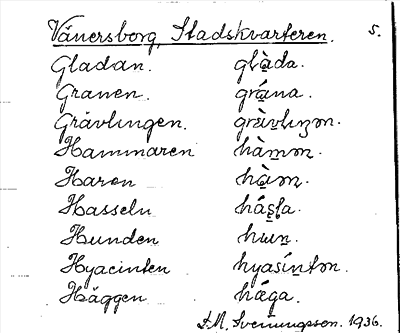 Vänersborg, Stadskvarteren. 5.
Gladan. glà̱da.
Granen. grá̱na.
Grävlingen. grä̀v̱lıŋən.
Hammaren hàm̱ən.
Haren hà̱ən.
Hasseln
Hunden huṉ.
Hyacinten hyasíṉtən.
Häggen hǽga.
1936.